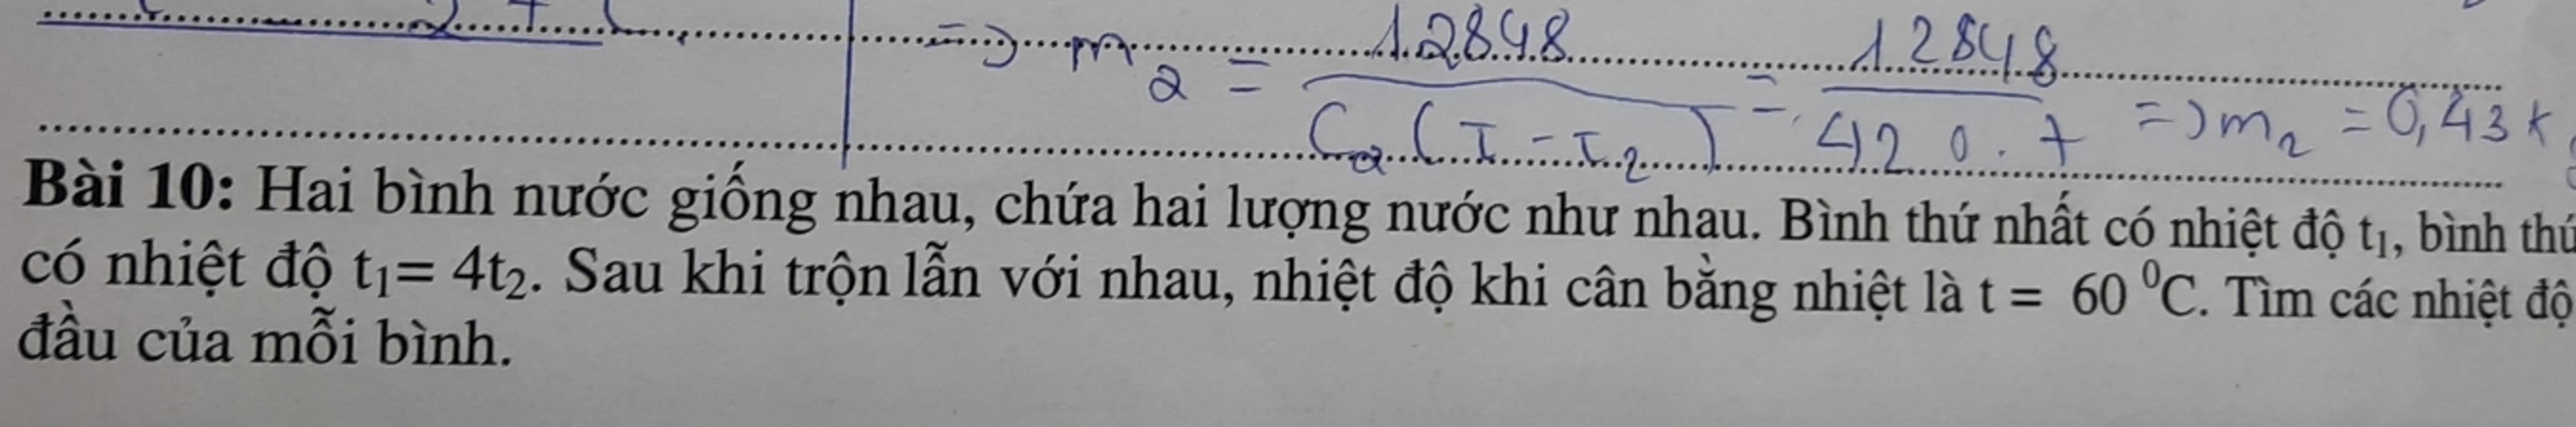 => m₂ = 12848 / C₂(T - T₂) = 12848 / 420.7 => m₂ = 0,43 k
Bài 10: Hai bình nước giống nhau, chứa hai lượng nước như nhau. Bình thứ nhất có nhiệt độ t₁, bình thứ
có nhiệt độ t₁= 4t₂. Sau khi trộn lẫn với nhau, nhiệt độ khi cân bằng nhiệt là t = 60 ⁰C. Tìm các nhiệt độ
đầu của mỗi bình.